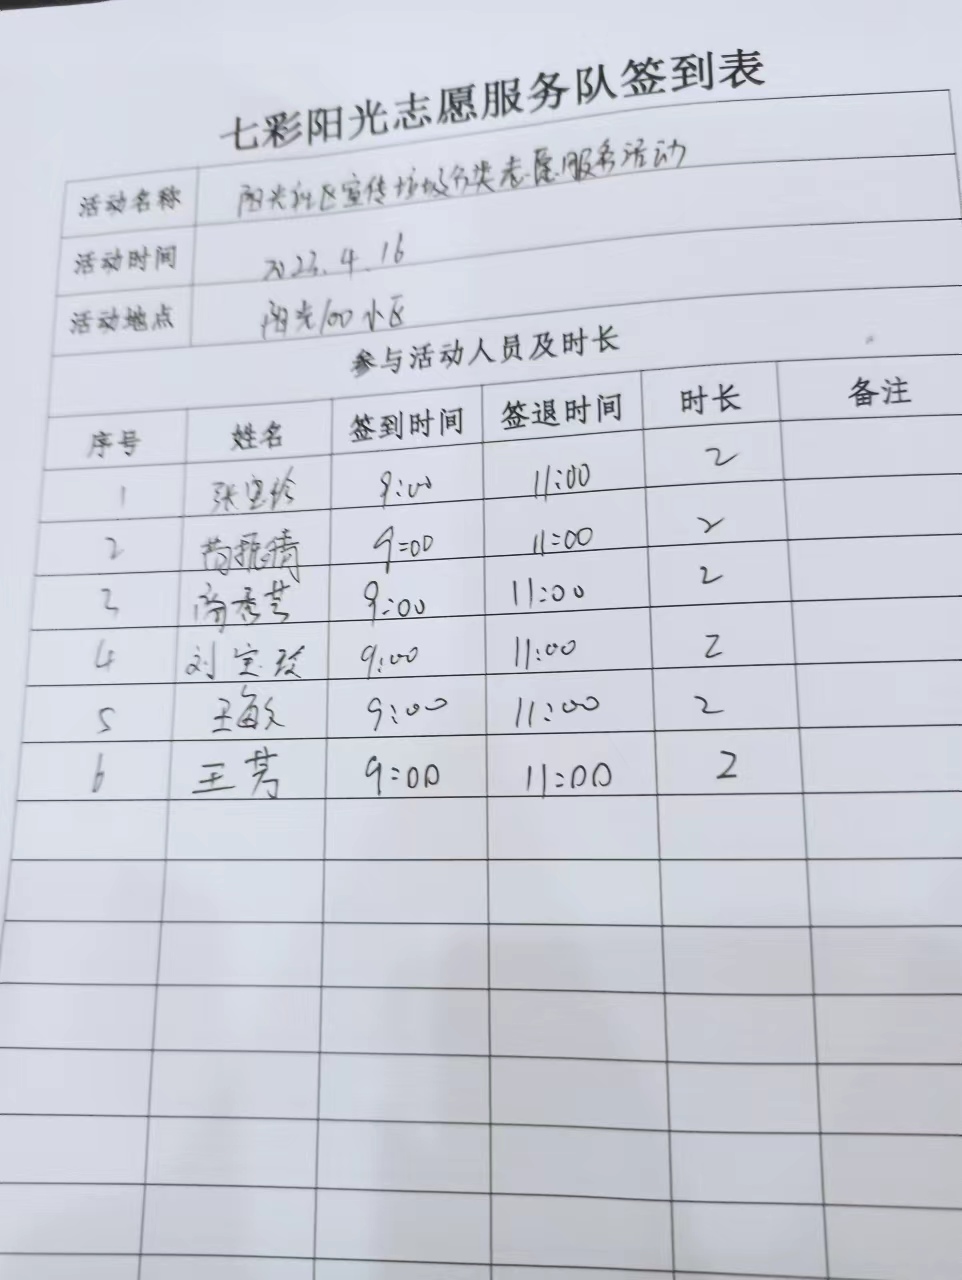 七彩阳光志愿服务队签到表
活动名称 阳光社区宣传垃圾分类志愿服务活动
活动时间 2023.4.16
活动地点 阳光100小区
参与活动人员及时长
序号 姓名 签到时间 签退时间 时长 备注
1 张宝玲 9:00 11:00 2
2 9:00 11:00 2
3 9:00 11:00 2
4 刘宝玲 9:00 11:00 2
5 王海文 9:00 11:00 2
6 王芳 9:00 11:00 2